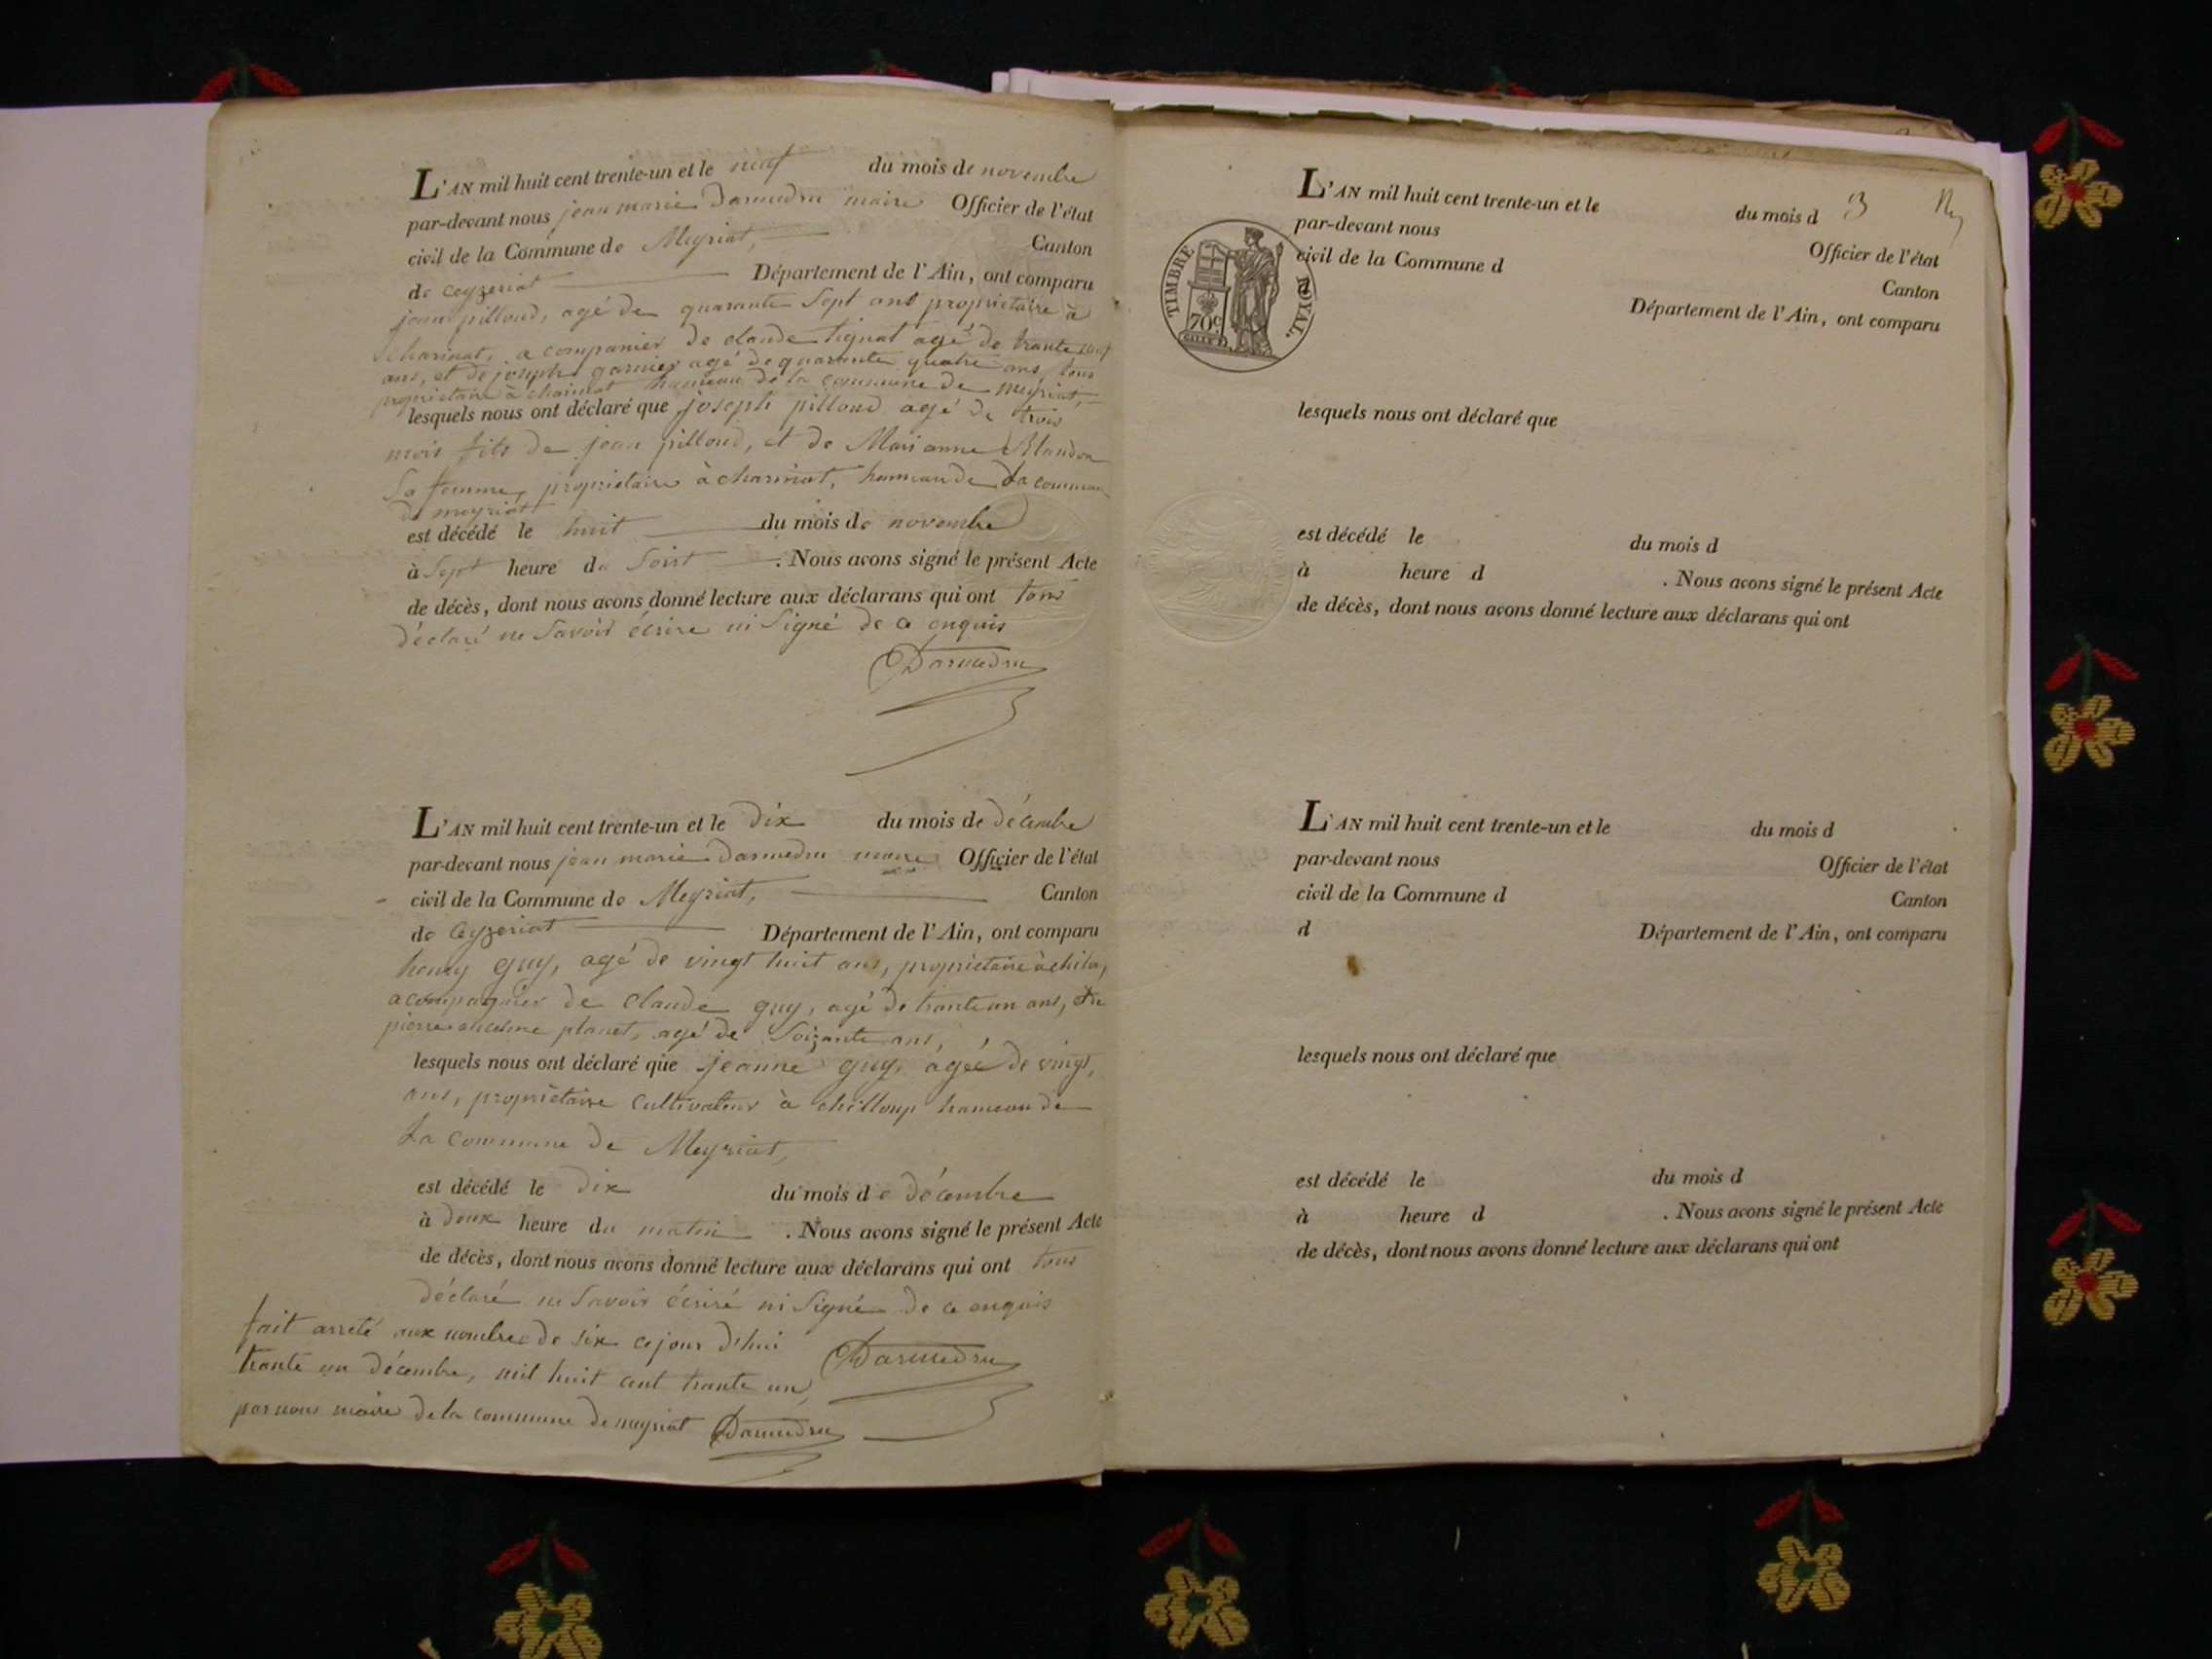 L'AN mil huit cent trente-un et le neuf du mois de novembre
par-devant nous jean marie Darmedru maire Officier de l'état
civil de la Commune de Meyriat, Canton
de ceyzeriat Département de l'Ain, ont comparu
jean pilloud, agé de quarante Sept ans proprietaire à
charinat, acompanier de claude tignat agé de trante neuf
ans, et de joseph garnier agé de quarante quatre ans, tous
proprietaire à charinat hameau de la commune de meyriat,
lesquels nous ont déclaré que joseph pilloud agé de trois
mois fils de jean pilloud, et de Marianne Blandon
Sa femme, proprietaire à charinat, hameau de La commune
de meyriat
est décédé le huit du mois de novembre
à Sept heure du Soirt . Nous avons signé le présent Acte
de décès, dont nous avons donné lecture aux déclarans qui ont tous
déclaré ne Savoir écrire ni Signé de ce enquis
Darmedru
L'AN mil huit cent trente-un et le dix du mois de décembre
par-devant nous jean marie Darmedru maire Officier de l'état
civil de la Commune de Meyriat, Canton
de Ceyzeriat Département de l'Ain, ont comparu
henry guy, agé de vingt huit ans, proprietaire à
acompagnier de claude guy, agé de trante un ans, et de
pierre planet, agé de Soizante ans,
lesquels nous ont déclaré que jeanne guy, agée de vingt,
ans, proprietaire Cultivateur à chilloup hameau de
La commune de Meyriat,
est décédé le dix du mois de décembre
à deux heure du matin . Nous avons signé le présent Acte
de décès, dont nous avons donné lecture aux déclarans qui ont tous
déclaré ne Savoir écriré ni Signé de ce enquis
fait arreté aux nombre de Six ce jour d'hui
trante un décembre, mil huit cent trante un,
par nous maire de la commune de meyriat Darmedru
Darmedru
3
L'AN mil huit cent trente-un et le du mois d
par-devant nous Officier de l'état
civil de la Commune d Canton
Département de l'Ain, ont comparu
TIMBRE ROYAL.
70c
lesquels nous ont déclaré que
est décédé le du mois d
à heure d . Nous avons signé le présent Acte
de décès, dont nous avons donné lecture aux déclarans qui ont
L'AN mil huit cent trente-un et le du mois d
par-devant nous Officier de l'état
civil de la Commune d Canton
d Département de l'Ain, ont comparu
lesquels nous ont déclaré que
est décédé le du mois d
à heure d . Nous avons signé le présent Acte
de décès, dont nous avons donné lecture aux déclarans qui ont